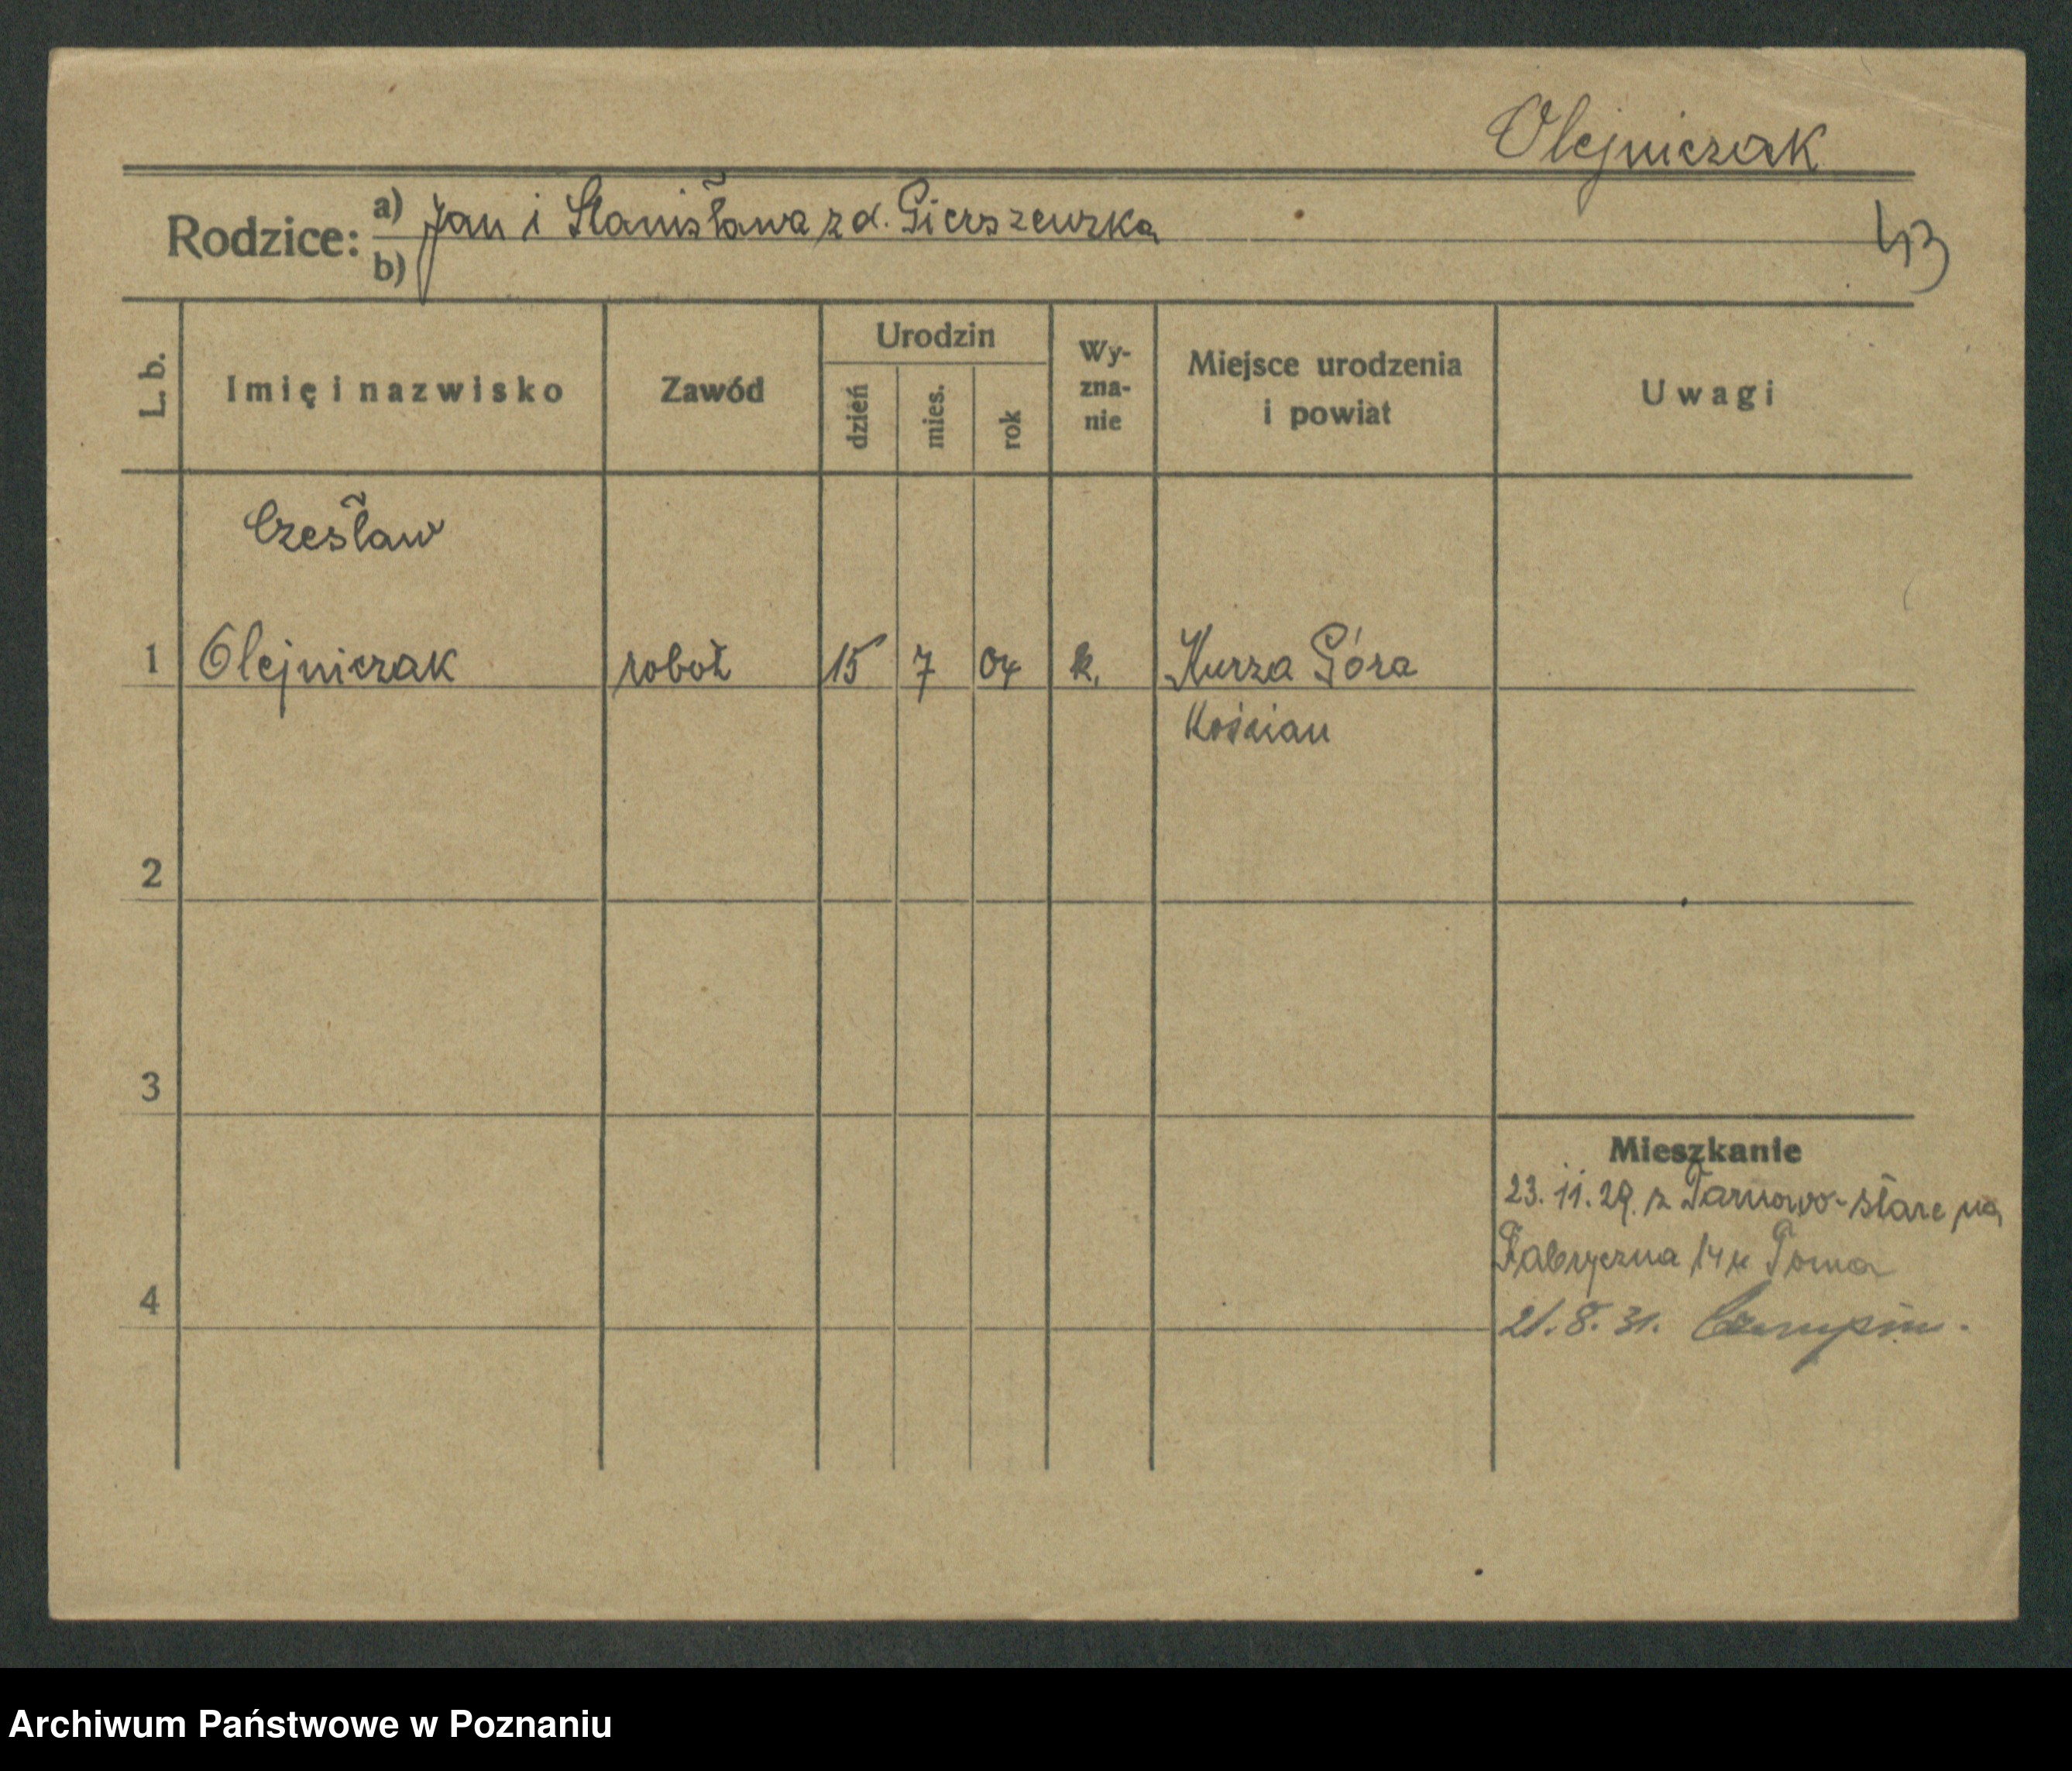 Olejniczak
Rodzice: a) Jan i Stanisława z d. Gierszewska
b)
43
L. b.
Imię i nazwisko
Zawód
Urodzin
dzień
mies.
rok
Wy-
zna-
nie
Miejsce urodzenia
i powiat
Uwagi
Czesław
1 Olejniczak robot 15 7 04 k. Kurza Góra
Kościan
2
3
Mieszkanie
23. 11. 29. z Tarnowo-stare na
Fabryczna 14 u
4
21. 8. 31. Czempiń.
Archiwum Państwowe w Poznaniu